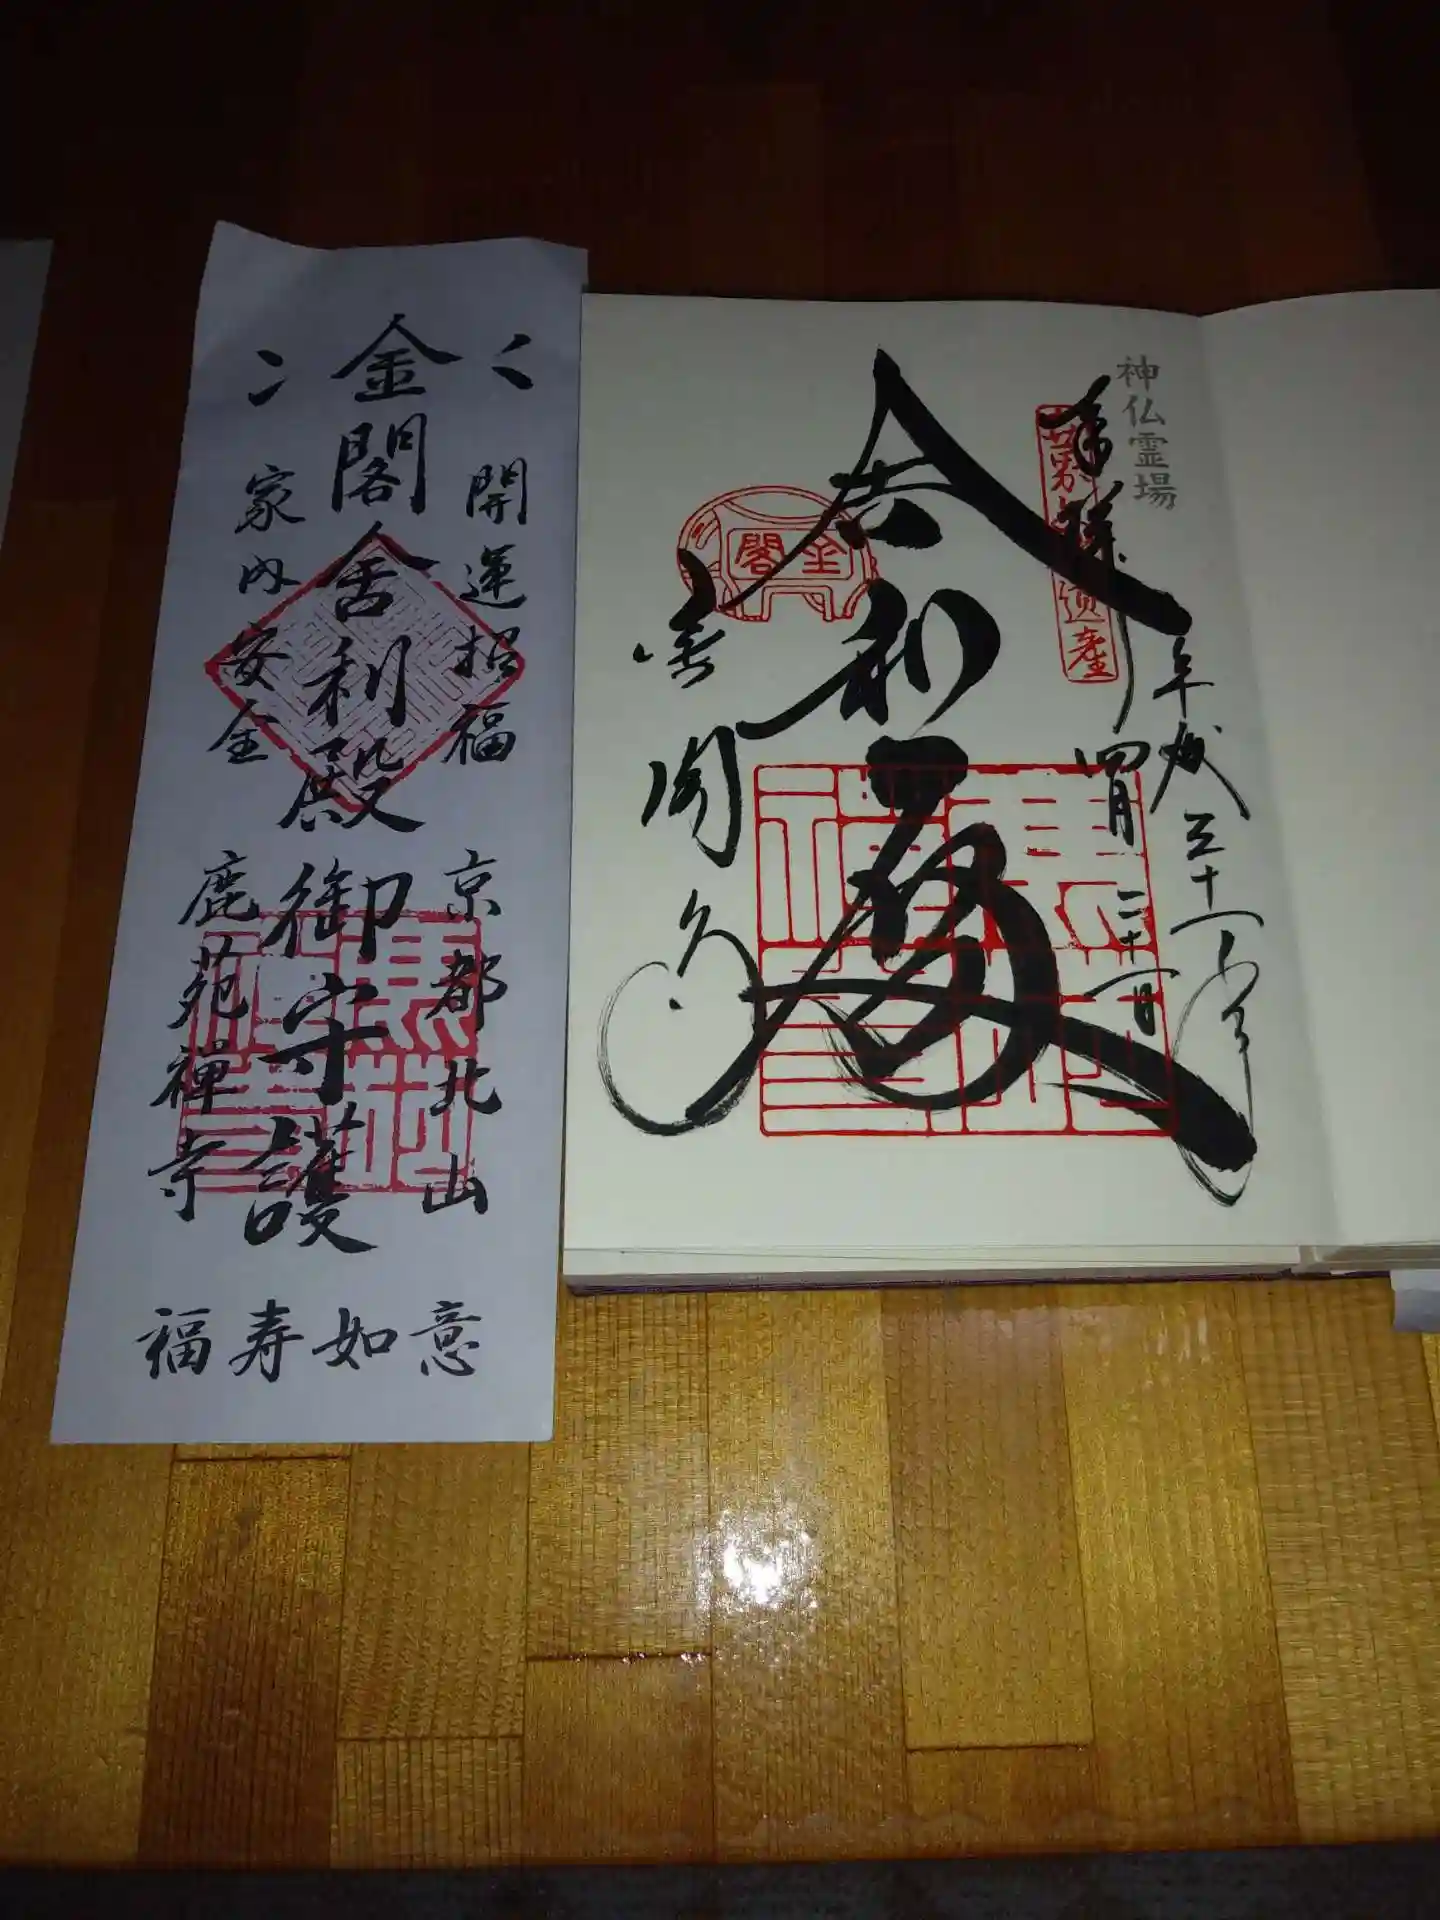 神仏霊場
奉拝
世界文化遺産
平成三十一年
四月二十一日
舎利殿
金閣
金閣寺
開運招福
京都北山
金閣舎利殿御守護
家内安全
鹿苑禅寺
福寿如意